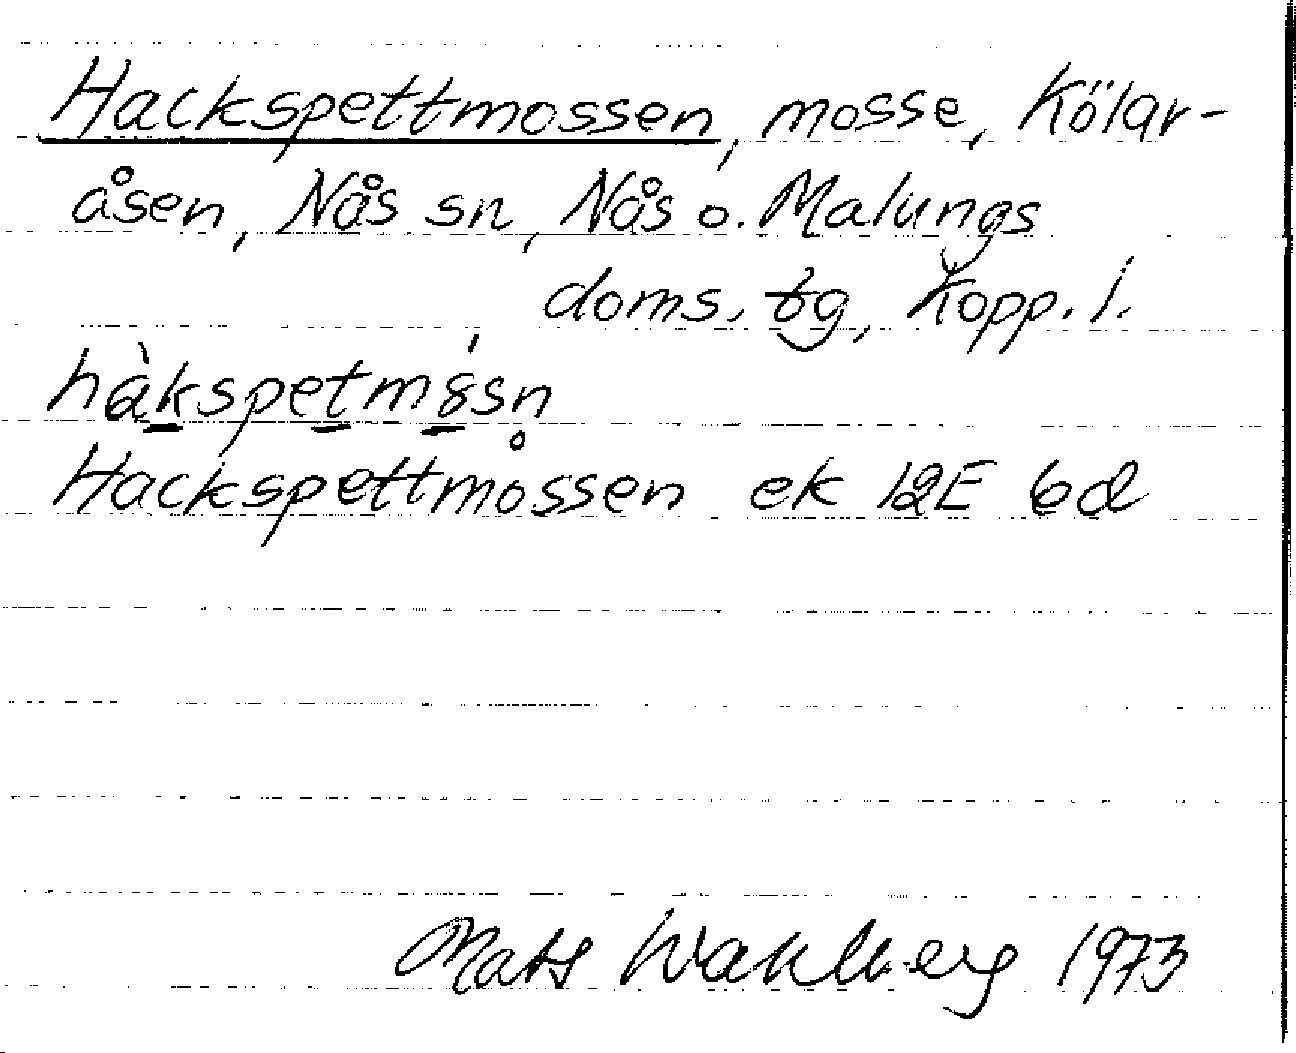 Hackspettmossen, mosse, Kölar-
åsen, Nås sn, Nås o. Malungs
doms. tg, Kopp. l.
hàkspetm8́sn̥
Hackspettmossen ek 12E 6d
Mats Wahlberg 1973